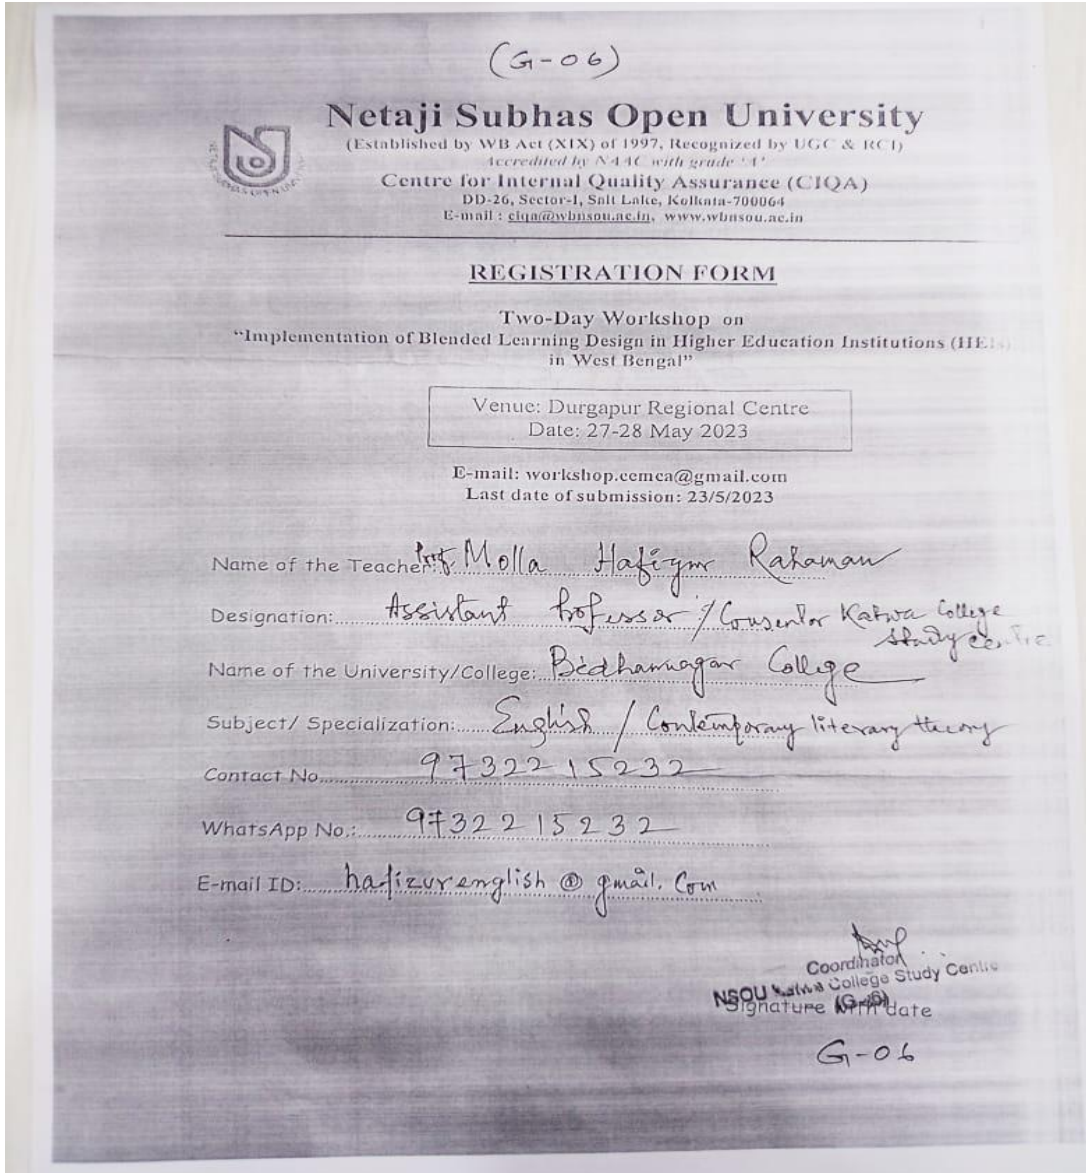 (G-06)
Netaji Subhas Open University
(Established by WB Act (XIX) of 1997, Recognized by UGC & RCI)
Accredited by NAAC with grade 'A'
Centre for Internal Quality Assurance (CIQA)
DD-26, Sector-I, Salt Lake, Kolkata-700064
E-mail : ciqa@wbnsou.ac.in, www.wbnsou.ac.in
REGISTRATION FORM
Two-Day Workshop on
"Implementation of Blended Learning Design in Higher Education Institutions (HEIs)
in West Bengal"
Venue: Durgapur Regional Centre
Date: 27-28 May 2023
E-mail: workshop.cemca@gmail.com
Last date of submission: 23/5/2023
Name of the Teacher: Prof. Molla Hafizur Rahaman
Designation: Assistant Professor / Katwa College
Study centre
Name of the University/College: Bidhannagar College
Subject/ Specialization: English / Contemporary literary theory
Contact No. 9732215232
WhatsApp No.: 9732215232
E-mail ID: hafizurenglish@gmail.com
Coordinator
NSOU Katwa College Study Centre
Signature with date
G-06